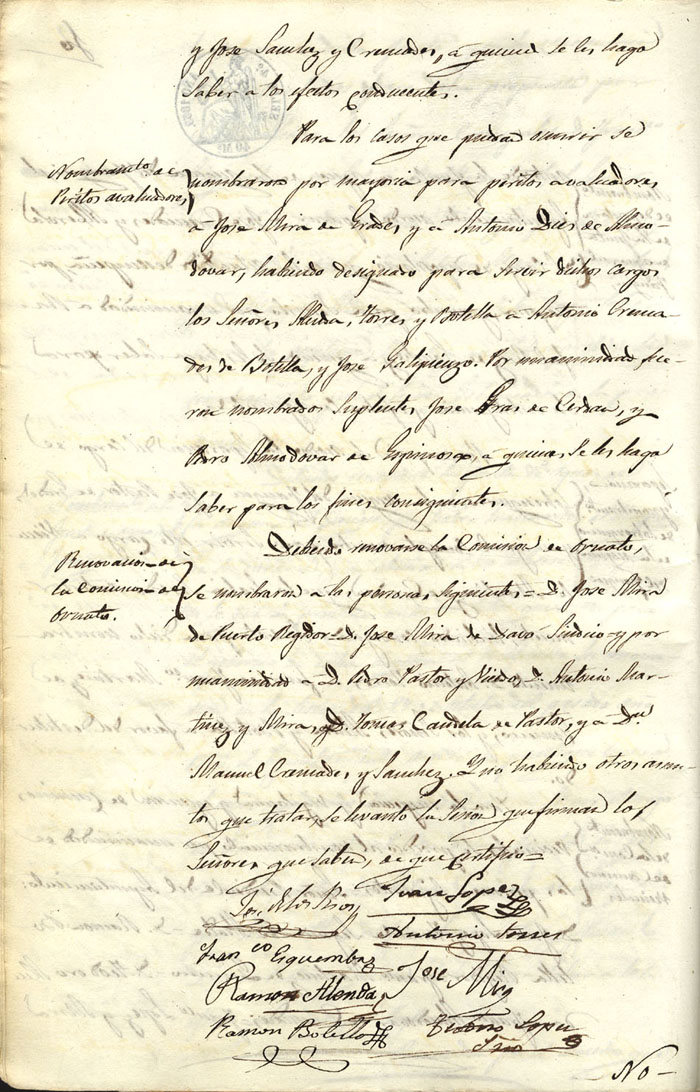 y Jose Sanchez y Cremades, á quienes se les haga
saber a los efectos conducentes.
Para los casos que puedan ocurrir se
Nombramto. de
Péritos avaluadores
nombraron por mayoria para peritos avaluadores
á Jose Mira de Grades, y á Antonio Dies de Almo-
dovar, habiendo designado para servir dichos cargos
los Señores Alenda, Torres y Botella á Antonio Crema-
des de Botella, y Jose Galipienzo. Por unanimidad fue-
ron nombrados Suplentes Jose Gras de Cerdan, y
Pedro Almodovar de Espinosa, á quienes se les haga
saber para los fines consiguientes.
Renovacion de
la Comision de
Ornato.
Debiendo renovarse la Comision de Ornato,
se nombraron a las personas siguientes = D. Jose Mira
de Puerto Regidor = D. Jose Mira de Sindico = y por
unanimidad a D. Pedro Pastor y D. Antonio Mar-
tinez y Mira, D. Tomas Candela de Pastor, y a Dn.
Manuel Cremades y Sanchez. Y no habiendo otros asun-
tos que tratar, se levantó la Sesion que firman los
Señores que saben, de que certifico =
José de los Rios
Juan Lopez
Antonio Torres
Franco Esquembre
Jose Mira
Ramon Alenda
Ramon Botella
Lopez
Srio
No-